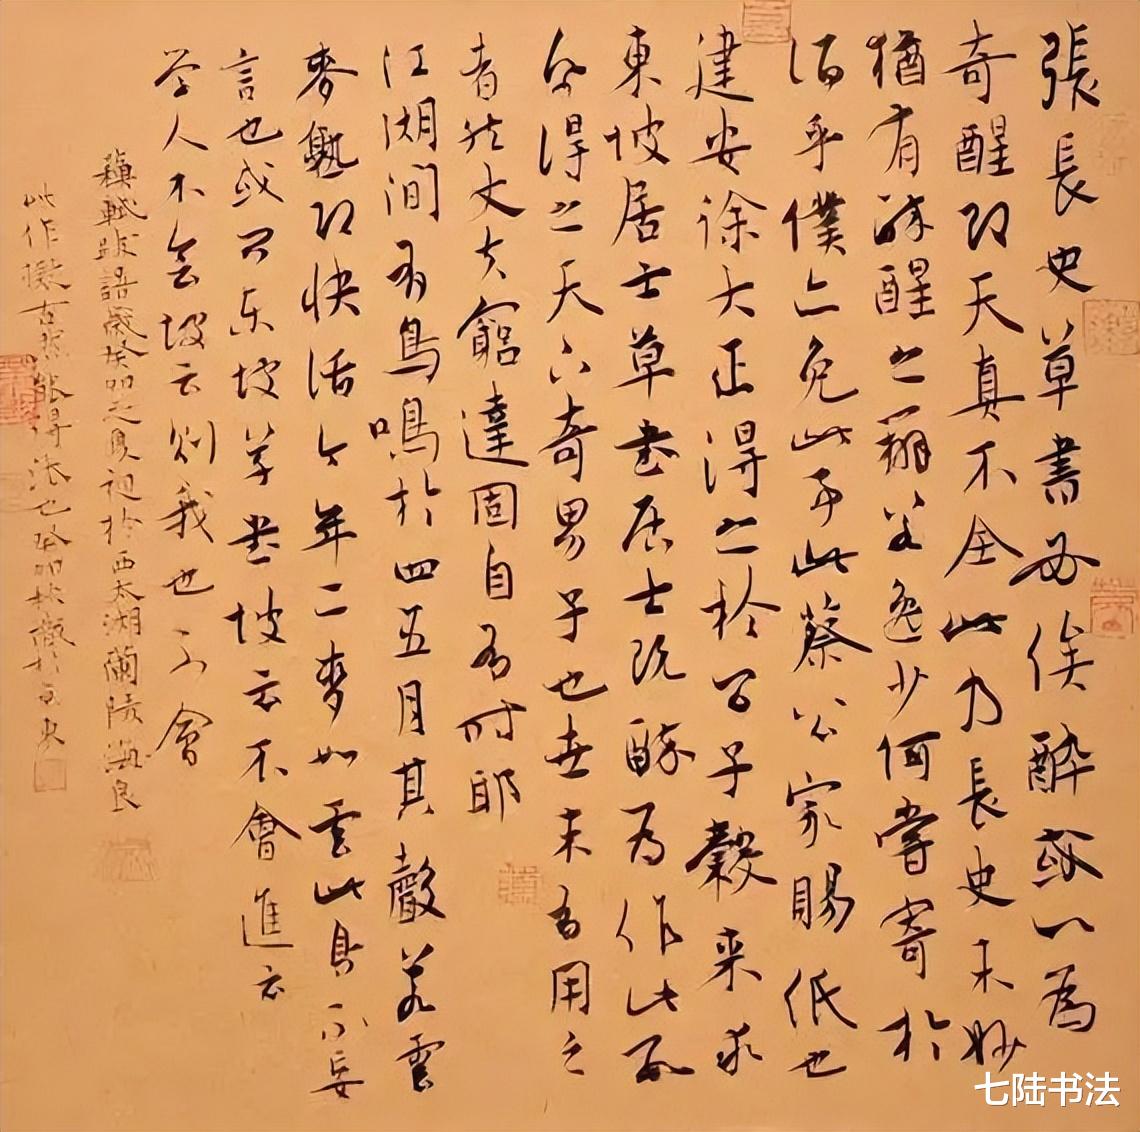 張長史草書必俟醉或以為
奇醒即天真不全此乃長史未妙
猶有醉醒之辨若逸少何嘗寄於
酒乎僕亦未免此事此蔡公家賜紙也
建安徐大正得之於公子穀来求
東坡居士草書居士既醉為作此
公得之天下奇男子也世未有用之
者然丈夫窮達固自有時耶
江湖間有鳥鳴於四五月其聲若云
麥熟即快活今年二麥如雲此鳥不妄
言也或問東坡草書坡云不會進云
學人不會坡云則我也不會
蘇軾跋語歲癸卯之夏初於西太湖蘭陵
此作擬古
七陆书法